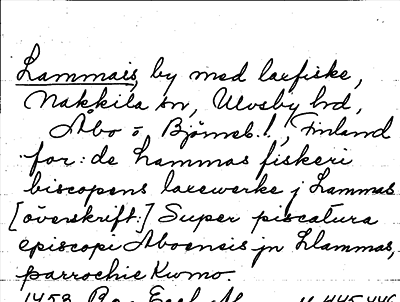 Lammais, by med laxfiske,
Nakkila sn, Ulvsby hd,
Åbo o Björneb.l., Finland
for: de Lammas fiskeri
biscopens laxewerke j Lammas
[överskrift:] Super piscatura
episcopi Aboensis jn Llammas,
parrochie Kwmo.
1453